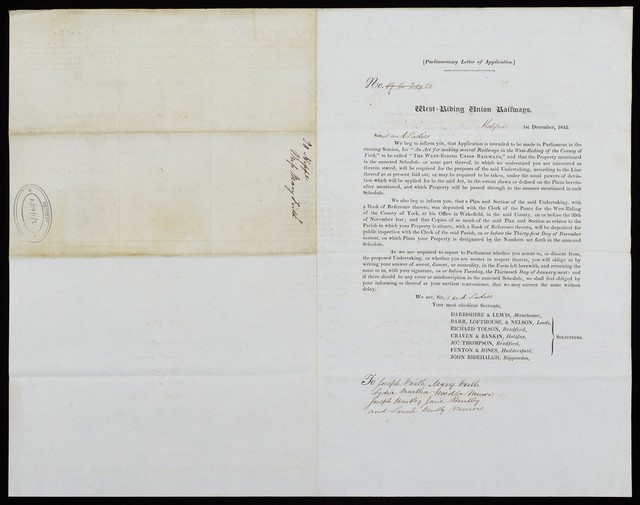 [Parliamentary Letter of Application.]
No.
West-Riding Union Railways.
Halifax 1st December, 1845.
Sirs and Ladies
We beg to inform you, that Application is intended to be made to Parliament in the
ensuing Session, for "An Act for making several Railways in the West-Riding of the County of
York," to be called "THE WEST-RIDING UNION RAILWAYS," and that the Property mentioned
in the annexed Schedule, or some part thereof, in which we understand you are interested as
therein stated, will be required for the purposes of the said Undertaking, according to the Line
thereof as at present laid out, or may be required to be taken, under the usual powers of devia-
tion which will be applied for in the said Act, to the extent shewn or defined on the Plans herein-
after mentioned, and which Property will be passed through in the manner mentioned in such
Schedule.
We also beg to inform you, that a Plan and Section of the said Undertaking, with
a Book of Reference thereto, was deposited with the Clerk of the Peace for the West-Riding
of the County of York, at his Office in Wakefield, in the said County, on or before the 30th
of November last; and that Copies of so much of the said Plan and Section as relates to the
Parish in which your Property is situate, with a Book of Reference thereto, will be deposited for
public inspection with the Clerk of the said Parish, on or before the Thirty-first Day of December
instant, on which Plans your Property is designated by the Numbers set forth in the annexed
Schedule.
As we are required to report to Parliament whether you assent to, or dissent from,
the proposed Undertaking, or whether you are neuter in respect thereto, you will oblige us by
writing your answer of assent, dissent, or neutrality, in the Form left herewith, and returning the
same to us, with your signature, on or before Tuesday, the Thirteenth Day of January next; and
if there should be any error or misdescription in the annexed Schedule, we shall feel obliged by
your informing us thereof at your earliest convenience, that we may correct the same without
delay.
We are, Sirs, and Ladies
Your most obedient Servants,
DARBISHIRE & LEWIS, Manchester,
BARR, LOFTHOUSE & NELSON, Leeds,
RICHARD TOLSON, Bradford,
CRAVEN & RANKIN, Halifax,
JOS. THOMPSON, Bradford,
FENTON & JONES, Huddersfield,
JOHN RIDEHALGH, Rippondon,
SOLICITORS.
To Joseph Firth Mary Firth
Lydia Martha Minor
Joseph Bentley Jane Bentley
and Sarah Bently Minors
Miss Mary Firth